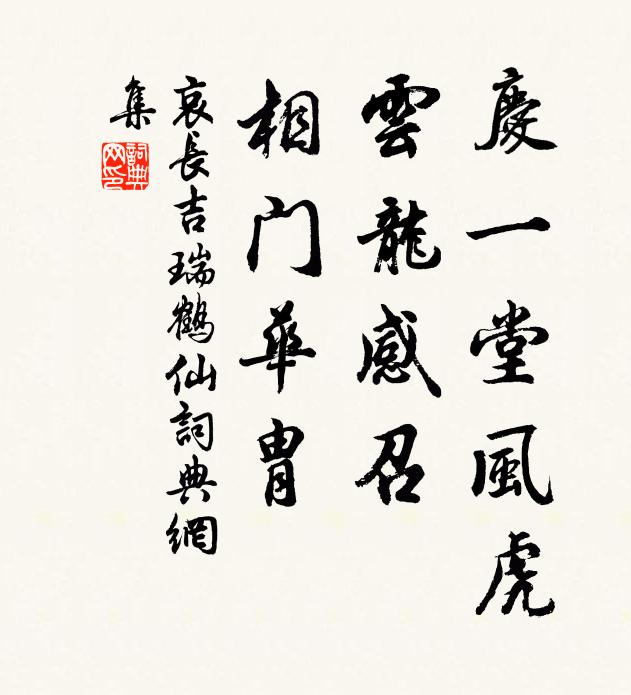 慶一堂風虎
雲龍感召
相門華胄
哀長吉瑞鶴仙詞典網
集
詞典
网印